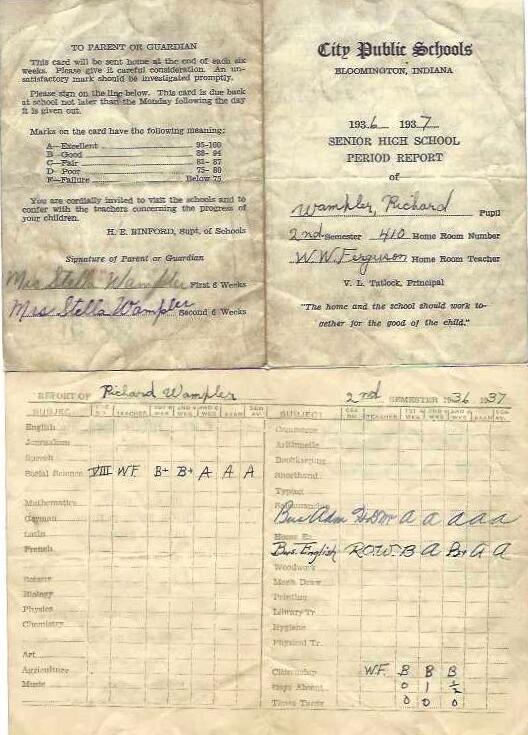 TO PARENT OR GUARDIAN
This card will be sent home at the end of each six
weeks. Please give it careful consideration. An un-
satisfactory mark should be investigated promptly.
Please sign on the line below. This card is due back
at school not later than the Monday following the day
it is given out.
Marks on the card have the following meaning:
A—Excellent 95-100
B—Good 88- 94
C—Fair 81- 87
D—Poor 75- 80
F—Failure Below 75
You are cordially invited to visit the schools and to
confer with the teachers concerning the progress of
your children.
H. E. BINFORD, Supt. of Schools
Signature of Parent or Guardian
Mrs Stella Wampler First 6 Weeks
Mrs Stella Wampler Second 6 Weeks
City Public Schools
BLOOMINGTON, INDIANA
1936 1937
SENIOR HIGH SCHOOL
PERIOD REPORT
of
Wampler, Richard Pupil
2nd Semester 410 Home Room Number
W. W. Ferguson Home Room Teacher
V. L. Tatlock, Principal
"The home and the school should work to-
gether for the good of the child."
REPORT OF Richard Wampler 2nd SEMESTER 1936 1937
SUBJECT TEACHER 1ST 6 WKS 2ND 6 WKS EXAM SEM AV.
English
Journalism
Speech
Social Science VIII W.F. B+ B+ A A A
Mathematics
German
Latin
French
Botany
Biology
Physics
Chemistry
Art
Agriculture
Music
SUBJECT TEACHER 1ST 6 WKS EXAM SEM AV.
Commerce
Arithmetic
Bookkeeping
Shorthand
Typing
Bus Adm A A A A A
Home Ec.
Bus. English R.O.W. B A B+ A A
Woodwork
Mech Draw
Printing
Library Tr.
Hygiene
Physical Tr.
Citizenship W.F. B B B
Days Absent 0 1 ½
Times Tardy 0 0 0